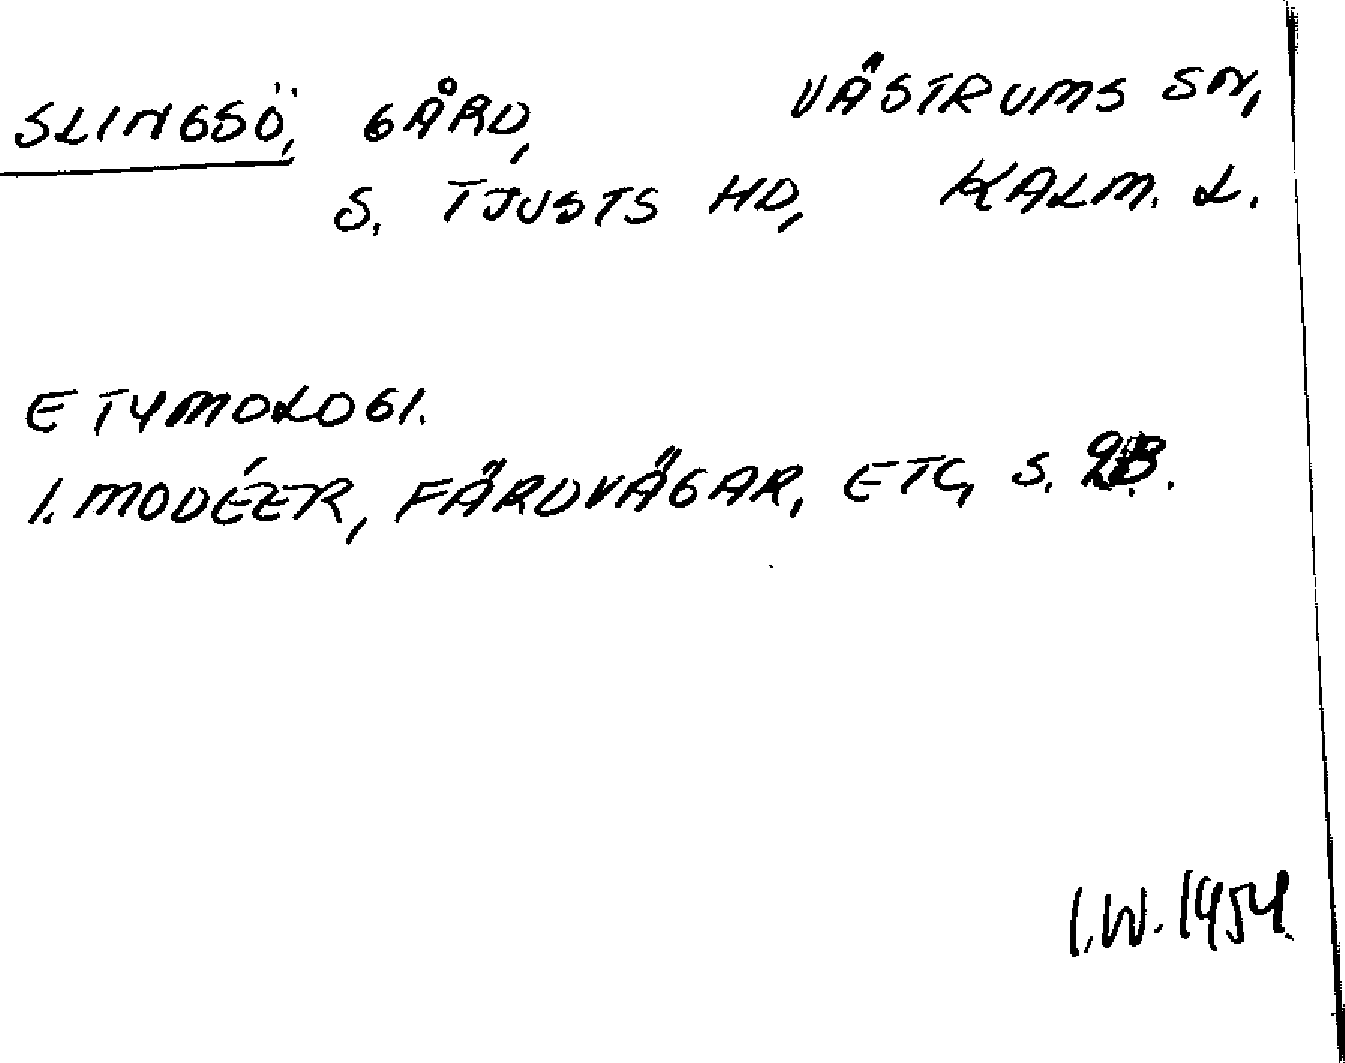 SLINGSÖ, GÅRD, VÄSTRUMS SN,
S. TJUSTS HD, KALM. L.
ETYMOLOGI.
I. MODÉER, FÄRDVÄGAR, ETC, S.
I.W. 1954.